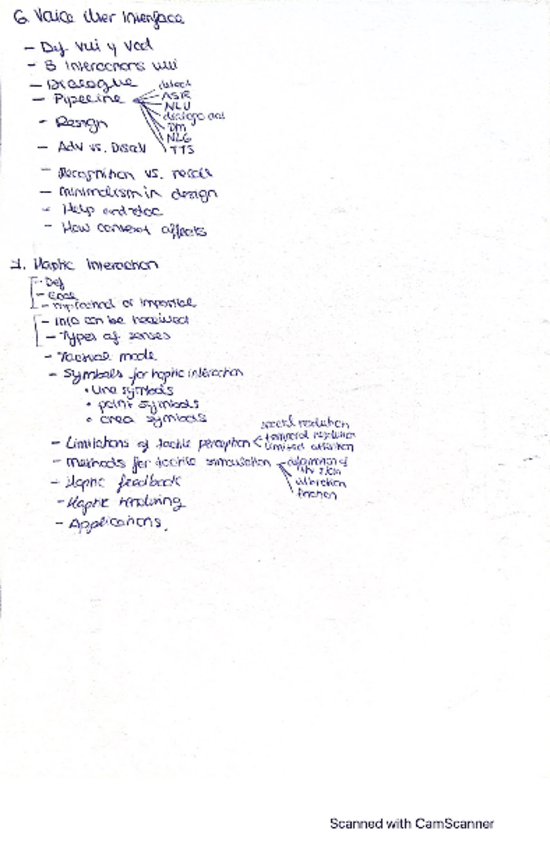 6. Voice User Interface
- Def VUI y VCD
- 3 Interactions VUI
- Dialogue
- Pipeline
detect
ASR
NLU
dialogue
DM
NLG
TTS
- Design
- Adv vs. Disadv
- Recognition vs. recall
- minimalism in design
- Help and doc
- How context affects
7. Haptic Interaction
- Def
- Goal
- or impossible
- Info can be received
- Types of senses
- Tactual mode
- Symbols for haptic interaction
• Line symbols
• point symbols
• area symbols
- Limitations of tactile perception
spacial resolution
temporal resolution
limited attention
- methods for tactile simulation
deformation of
the skin
vibration
friction
- Haptic feedback
- Haptic rendering
- Applications.
Scanned with CamScanner